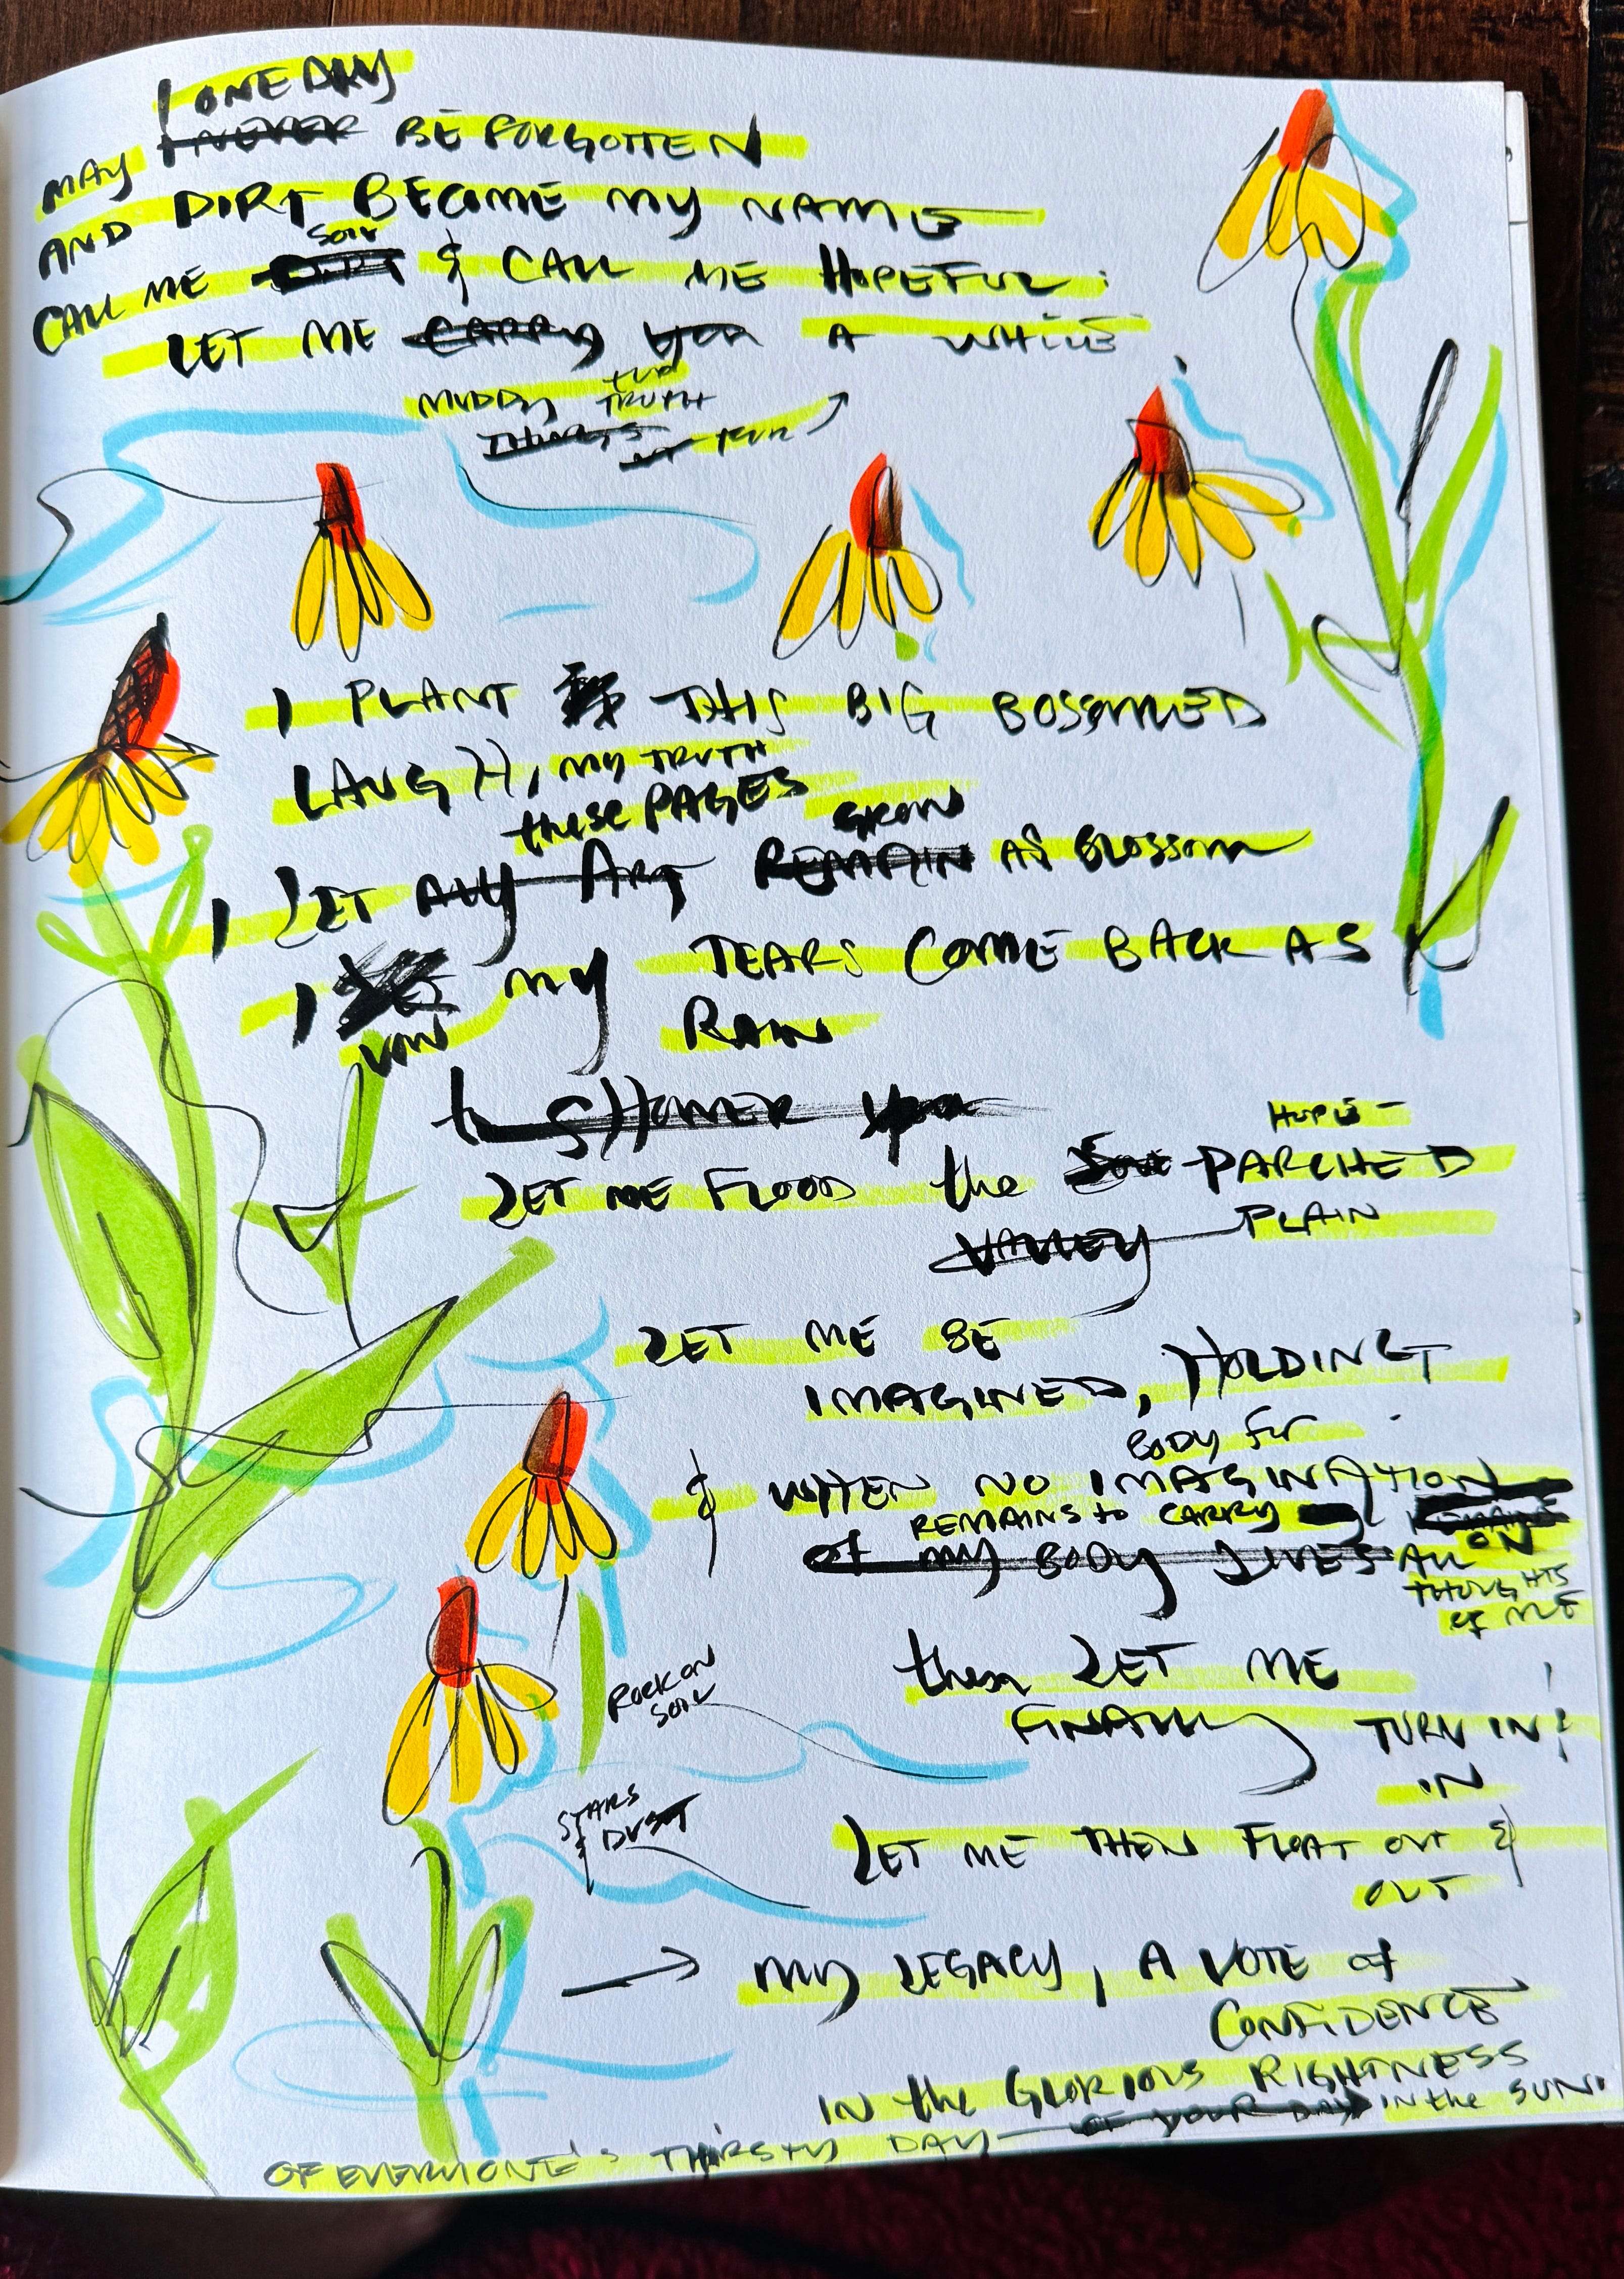 I ONE DAY
MAY I NEVER BE FORGOTTEN
AND DIRT BECOME MY NAME
SOIL
CALL ME DIRT & CALL ME HOPEFUL.
LET ME CARRY YOU A WHILE
MUDDY TURN
TRUTH
THINGS
I PLANT THIS BIG BOSOMED
LAUGH, MY TRUTH
these PAGES
GROW
I LET MY ART REMAIN AS BLOSSOM
I MY TEARS COME BACK AS
VOW RAIN
to SHOWER you
HOPE-
LET ME FLOOD the PARCHED
VALLEY PLAIN
LET ME BE
IMAGINED, HOLDING
BODY for
& WHEN NO IMAGINATION
REMAINS to CARRY REMAINS
of MY BODY LIVES ALL ON
THOUGHTS
of ME
then LET ME
ROCK ON
SOIL
FINALLY TURN IN &
IN
STARS
& DUST
LET ME THEN FLOAT OUT &
OUT
MY LEGACY, A VOTE of
CONFIDENCE
IN the GLORIOUS RIGHTNESS
OF YOUR DAY IN the SUN.
OF EVERYONE'S THIRSTY DAY